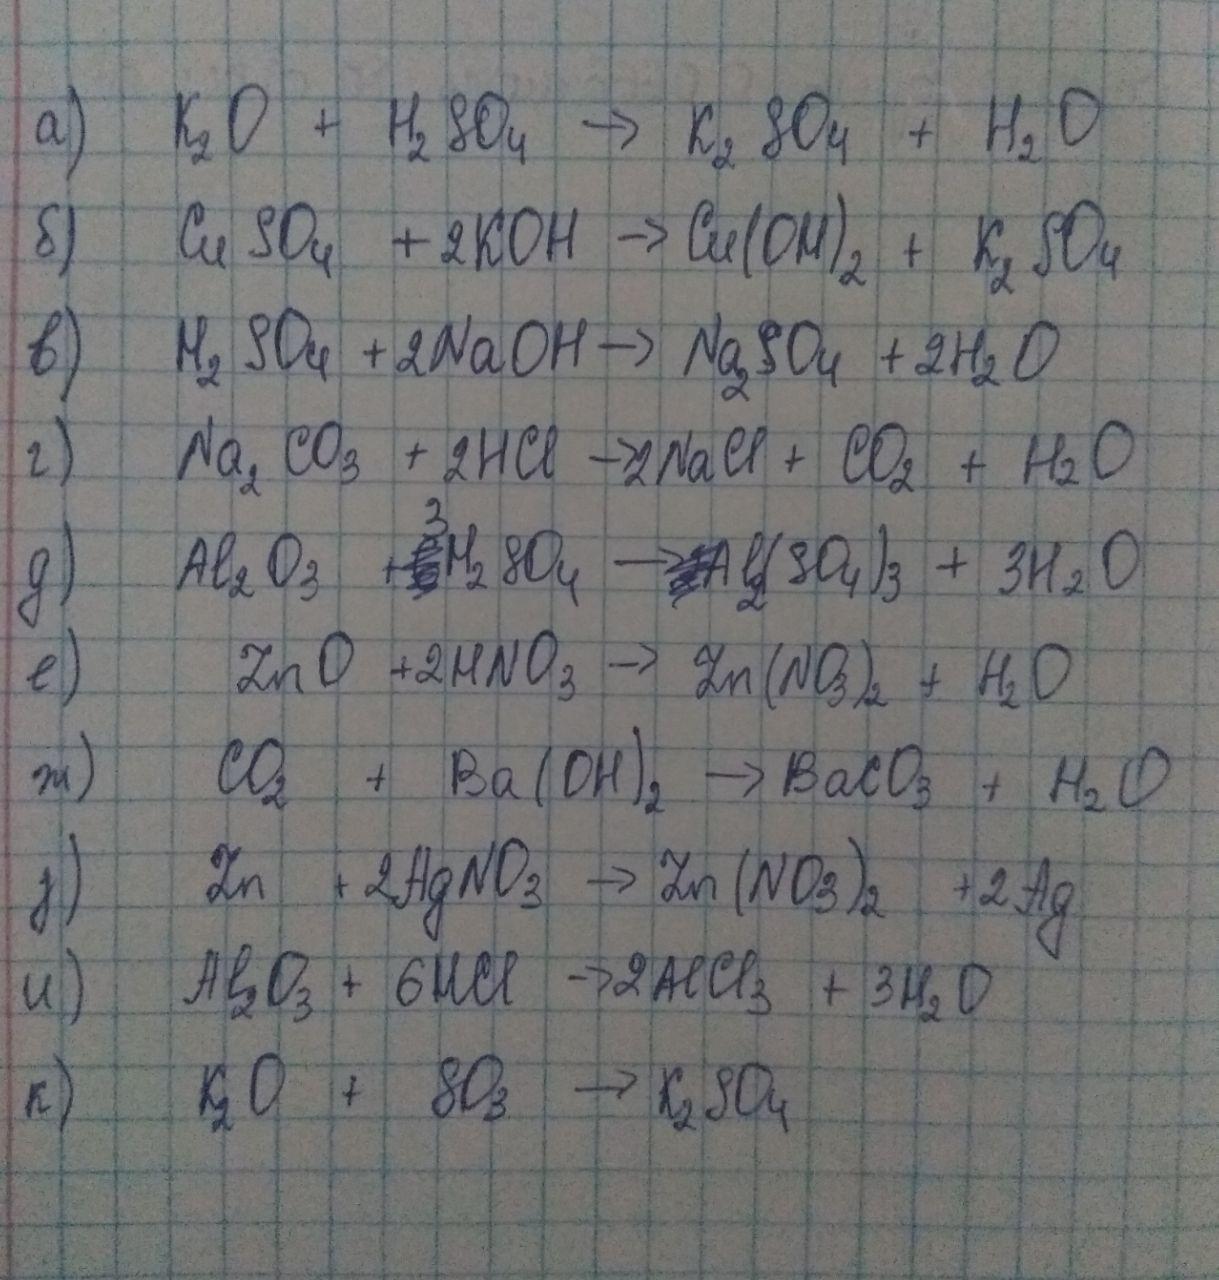 а) K₂O + H₂SO₄ → K₂SO₄ + H₂O
б) CuSO₄ + 2KOH → Cu(OH)₂ + K₂SO₄
в) H₂SO₄ + 2NaOH → Na₂SO₄ + 2H₂O
г) Na₂CO₃ + 2HCl → 2NaCl + CO₂ + H₂O
д) Al₂O₃ + 3H₂SO₄ → Al₂(SO₄)₃ + 3H₂O
е) ZnO + 2HNO₃ → Zn(NO₃)₂ + H₂O
ж) CO₂ + Ba(OH)₂ → BaCO₃ + H₂O
з) Zn + 2AgNO₃ → Zn(NO₃)₂ + 2Ag
и) Al₂O₃ + 6HCl → 2AlCl₃ + 3H₂O
к) K₂O + SO₃ → K₂SO₄